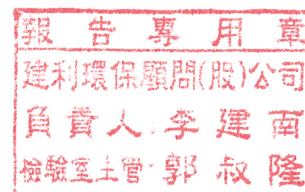 報告專用章
建利環保顧問(股)公司
負責人：李建南
檢驗室主管：郭叔隆